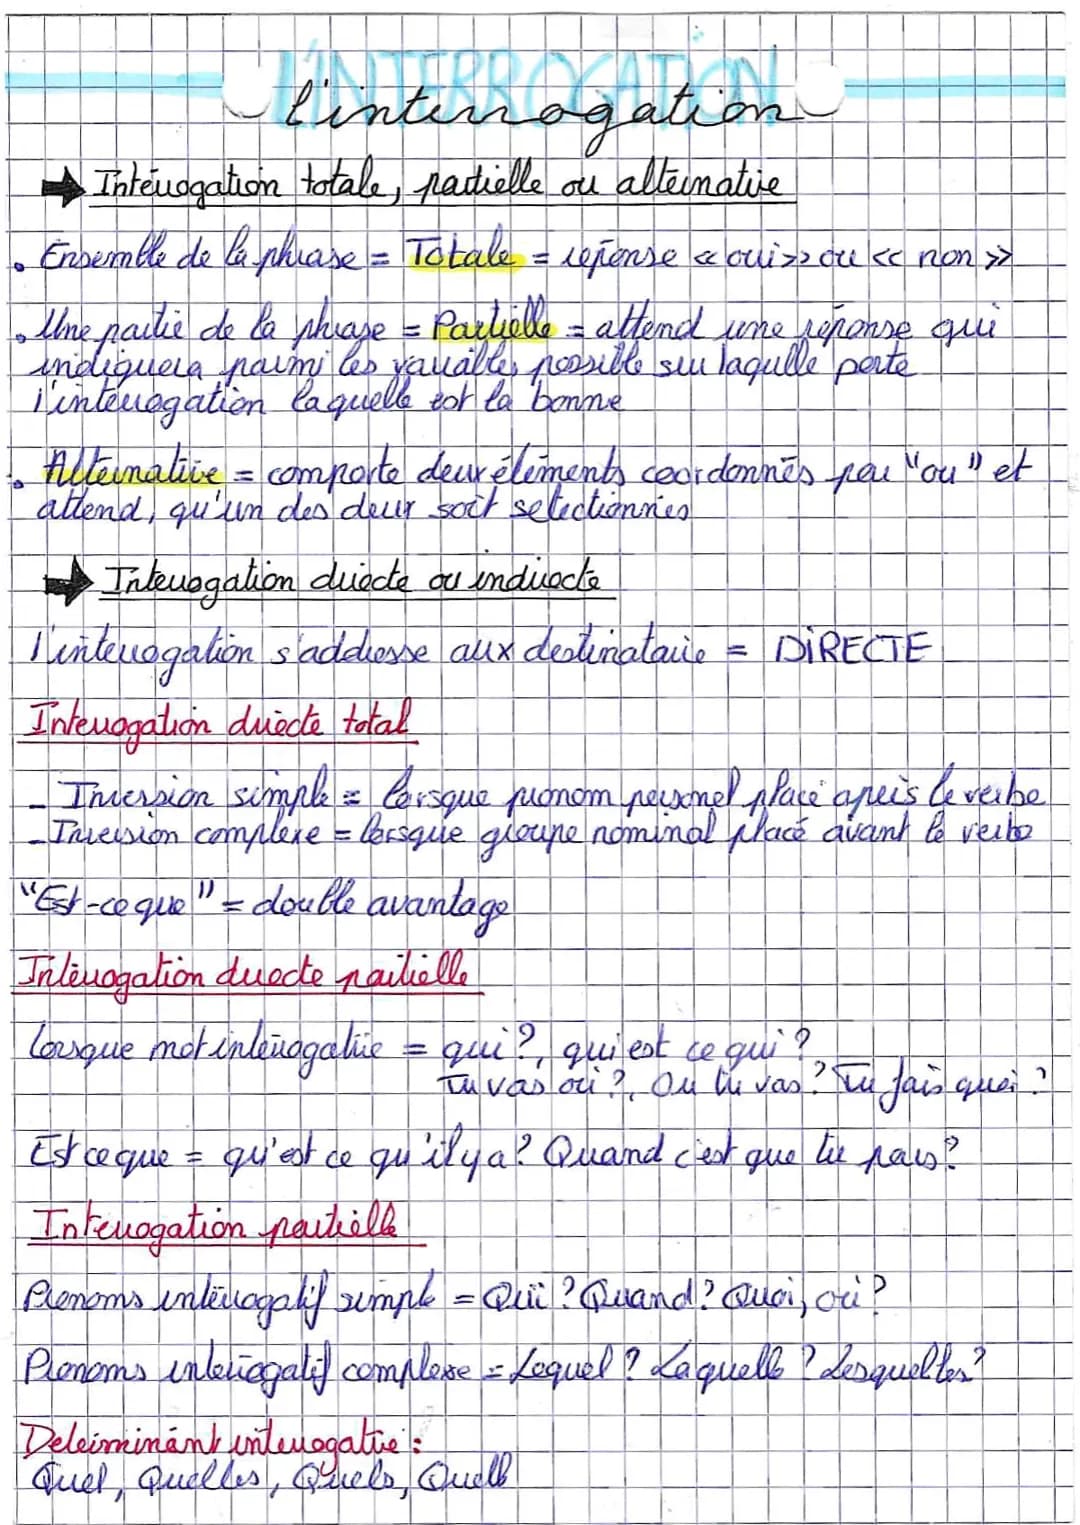 L'INTERROGATION
l'interrogation
➡ Interrogation totale, partielle ou alternative
• Ensemble de la phrase = Totale = réponse << oui >> ou << non >>
• Une partie de la phrase = Partielle = attend une réponse qui
indiquera parmi les variables possible sur laquelle porte
l'interrogation laquelle est la bonne
• Alternative = comporte deux éléments coordonnés par "ou" et
attend, qu'un des deux soit selectionnés
➡ Interrogation directe ou indirecte
l'interrogation s'addresse aux destinataire = DIRECTE
Interrogation directe total
- Inversion simple = lorsque pronom personnel placé après le verbe
- Inversion complexe = lorsque groupe nominal placé avant le verbe
"Est-ce que" = double avantage
Interrogation directe partielle
lorsque mot interrogative = qui ?, qui est ce qui ?
Tu vas où ?, Ou tu vas ? Tu fais quoi ?
Est ce que = qu'est ce qu'il y a ? Quand c'est que tu pars ?
Interrogation partielle
Pronoms interrogatif simple = Qui ? Quand ? Quoi, où ?
Pronoms interrogatif complexe = Lequel ? Laquelle ? Lesquelles ?
Determinant interrogative :
Quel, Quelles, Quels, Quelle